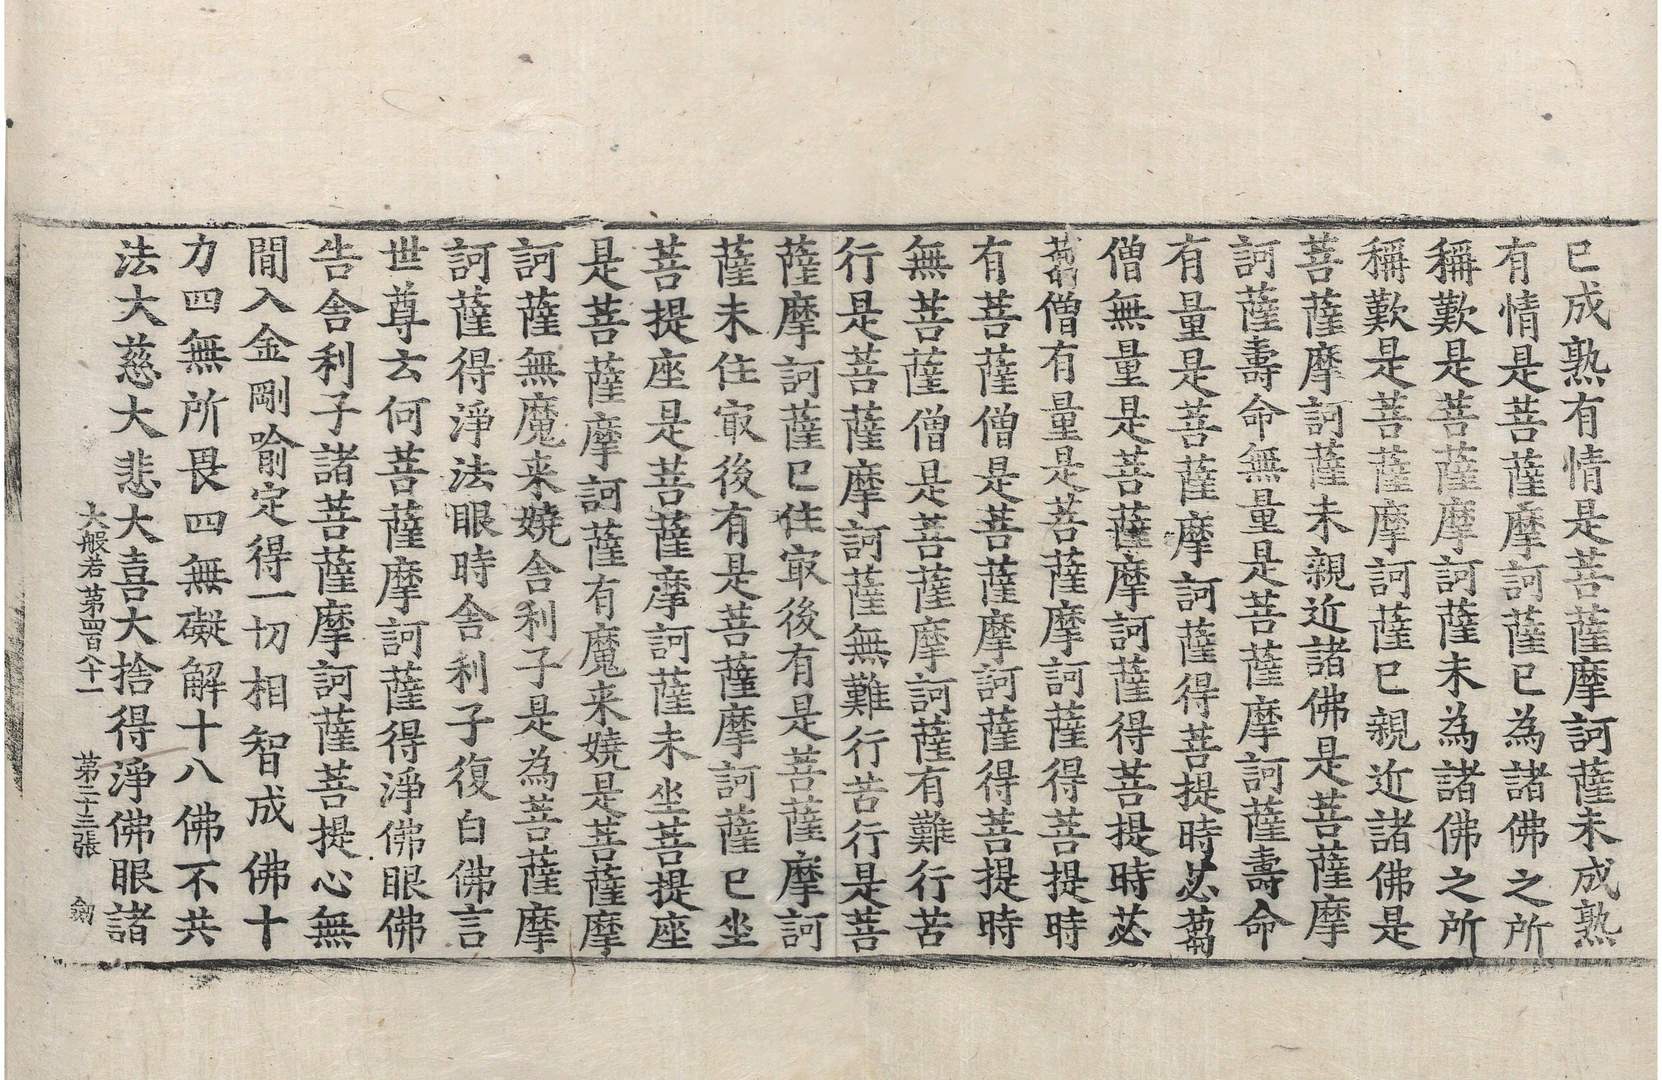 已成熟有情是菩薩摩訶薩未成熟
有情是菩薩摩訶薩已為諸佛之所
稱歎是菩薩摩訶薩未為諸佛之所
稱歎是菩薩摩訶薩已親近諸佛是
菩薩摩訶薩未親近諸佛是菩薩摩
訶薩壽命無量是菩薩摩訶薩壽命
有量是菩薩摩訶薩得菩提時苾蒭
僧無量是菩薩摩訶薩得菩提時苾
蒭僧有量是菩薩摩訶薩得菩提時
有菩薩僧是菩薩摩訶薩得菩提時
無菩薩僧是菩薩摩訶薩有難行苦
行是菩薩摩訶薩無難行苦行是菩
薩摩訶薩已住㝡後有是菩薩摩訶
薩未住㝡後有是菩薩摩訶薩已坐
菩提座是菩薩摩訶薩未坐菩提座
是菩薩摩訶薩有魔来嬈是菩薩摩
訶薩無魔来嬈舍利子是為菩薩摩
訶薩得淨法眼時舍利子復白佛言
世尊云何菩薩摩訶薩得淨佛眼佛
告舍利子諸菩薩摩訶薩菩提心無
間入金剛喻定得一切相智成佛十
力四無所畏四無礙解十八佛不共
法大慈大悲大喜大捨得淨佛眼諸
大般若第四百八十一 第二十三張 劒